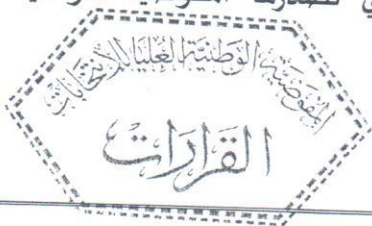 المفوضية الوطنية العليا للانتخابات
القرارات